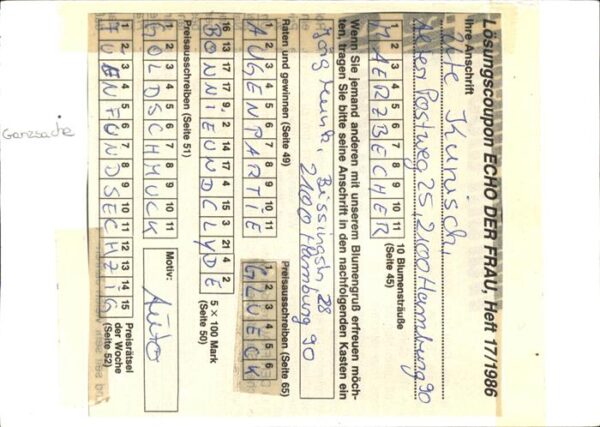 Ganzsache
Lösungscoupon ECHO DER FRAU, Heft 17/1986
Ihre Anschrift
Ute Kunisch,
Alter Postweg 25, 2100 Hamburg 90
1 2 3 4 5 6 7 8 9 10 11
MAERZBECHER
10 Blumensträuße
(Seite 45)
Wenn Sie jemand anderen mit unserem Blumengruß erfreuen möch-
ten, tragen Sie bitte seine Anschrift in den nachfolgenden Kasten ein
28
2100 Hamburg 90
Raten und gewinnen (Seite 49)
1 2 3 4 5 6 7 8 9 10 11
AUGENPARTIE
Preisausschreiben (Seite 65)
1 2 3 4 5 6
GLUECK
16 13 17 17 9 2 14 17 4 15 3 21 4 2
BONNIEUNDCLYDE
5 × 100 Mark
(Seite 50)
Preisausschreiben (Seite 51)
1 2 3 4 5 6 7 8 9 10 11
GOLDSCHMUCK
Motiv:
Auto
1 2 3 4 5 6 7 8 9 10 11 12 13 14 15
FUENFUNDSECHZIG
Preisrätsel
der Woche
(Seite 52)